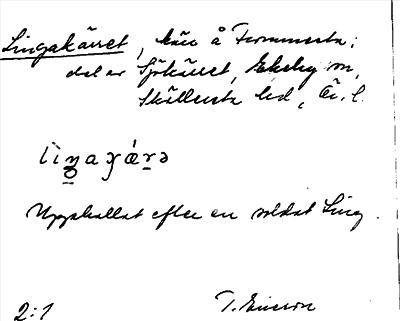 Lingakärret, kärr å Fornmesta;
del av Sjökärret, Ekeby sn,
Sköllersta hd, Ör. l.
Uppkallat efter en soldat Ling.
2:1 T. Ericson